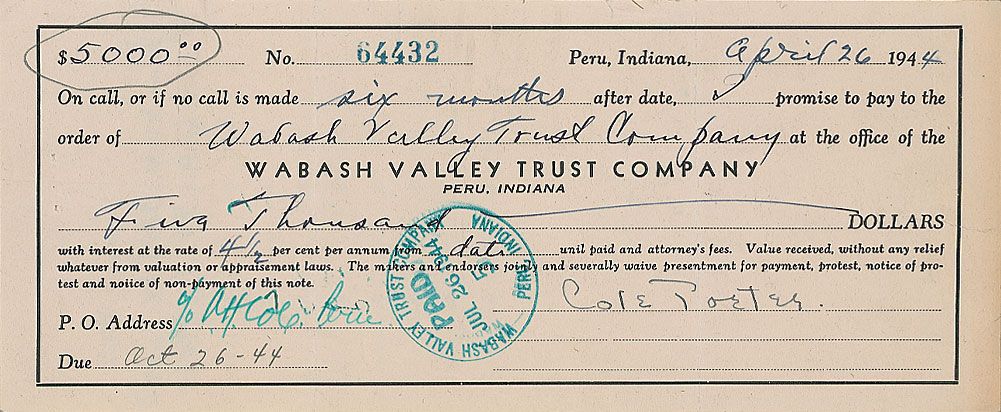 $5000 00 No. 64432 Peru, Indiana, April 26 1944
On call, or if no call is made six months after date, I promise to pay to the
order of Wabash Valley Trust Company at the office of the
WABASH VALLEY TRUST COMPANY
PERU, INDIANA
Five Thousand DOLLARS
with interest at the rate of 4 1/2 per cent per annum from date unil paid and attorney's fees. Value received, without any relief
whatever from valuation or appraisement laws. The makers and endorsers jointly and severally waive presentment for payment, protest, notice of pro-
test and noiice of non-payment of this note.
Cole Porter.
P. O. Address
Due Oct 26-44
WABASH VALLEY TRUST COMPANY
PAID
JUL 26 1944
PERU, INDIANA